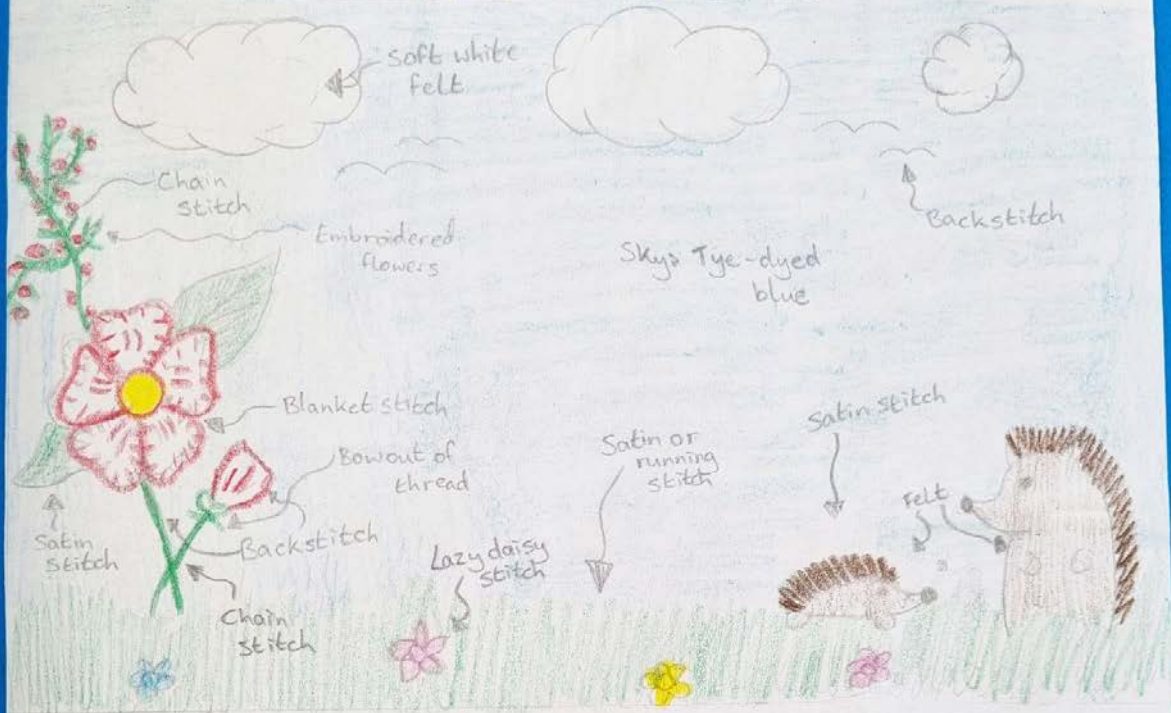 Soft white
felt
Chain
stitch
Embroidered
flowers
Backstitch
Sky: Tye-dyed
blue
Blanket stitch
Bow out of
thread
Satin or
running
stitch
Satin stitch
Felt
Satin
stitch
Backstitch
Lazy daisy
stitch
Chain
stitch